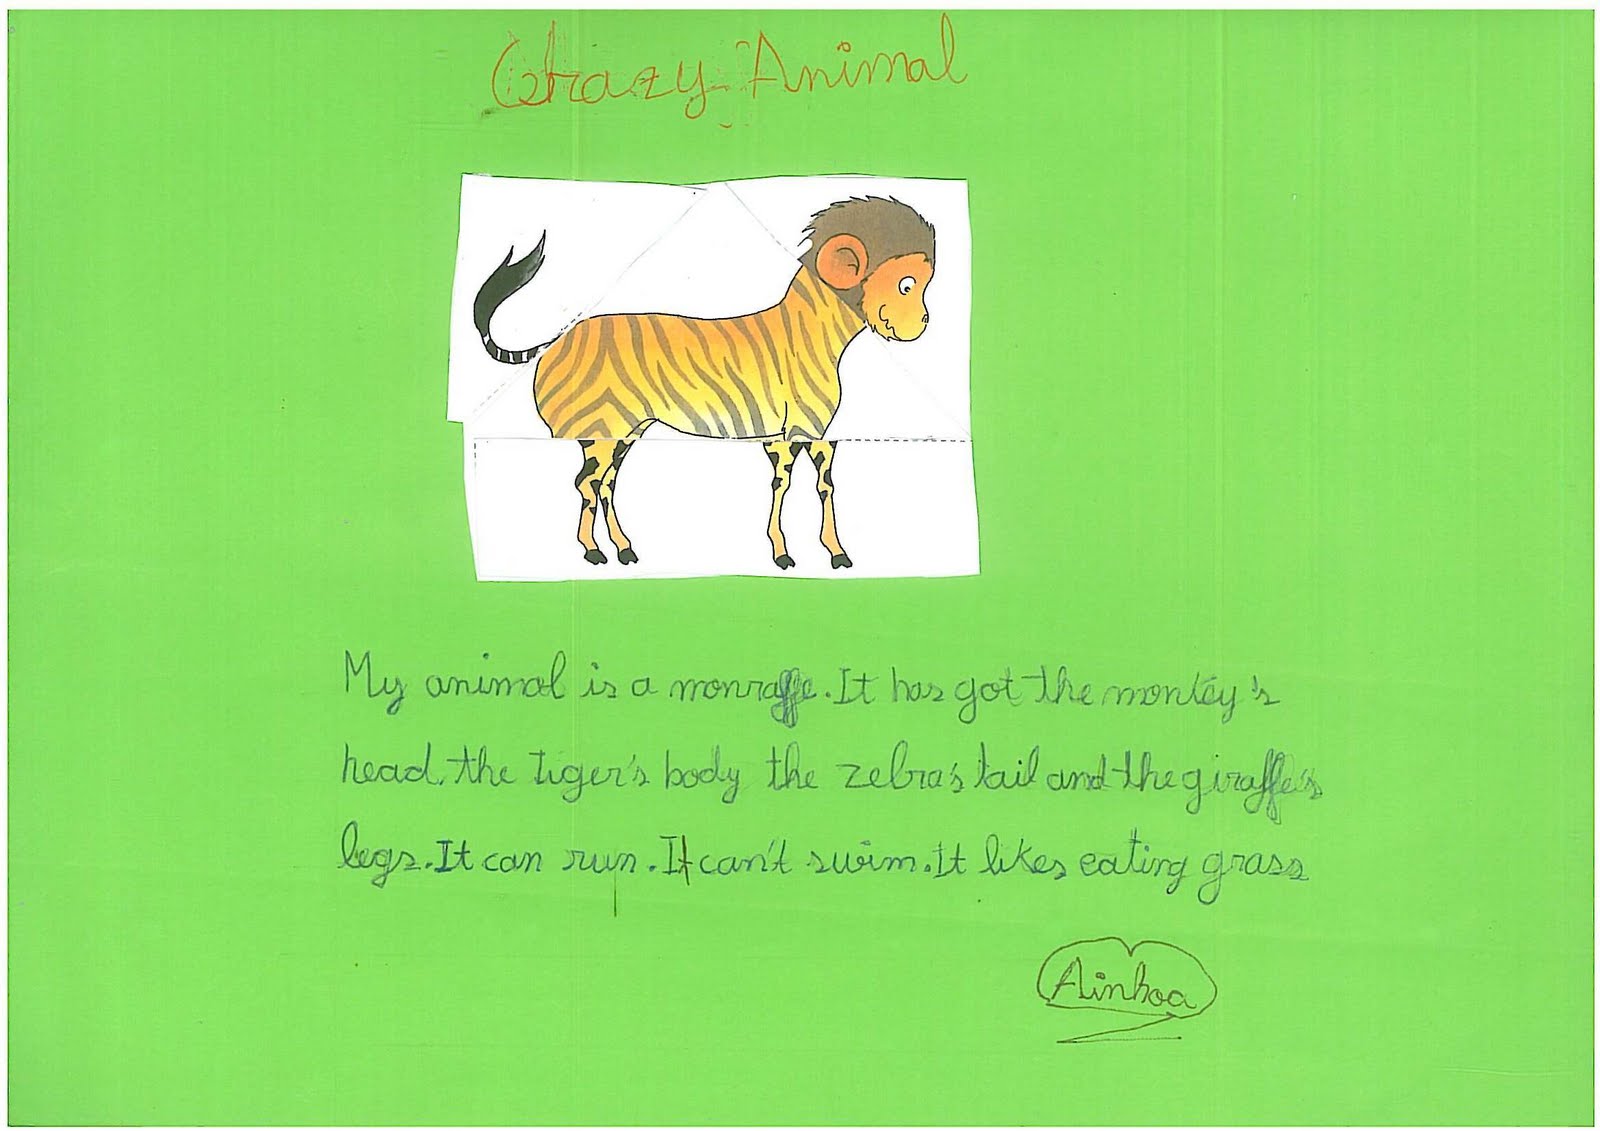 Crazy Animal
My animal is a monraffe. It has got the monkey's
head. the tiger's body the zebra's tail and the giraffe's
legs. It can run. It can't swim. It likes eating grass
Ainhoa